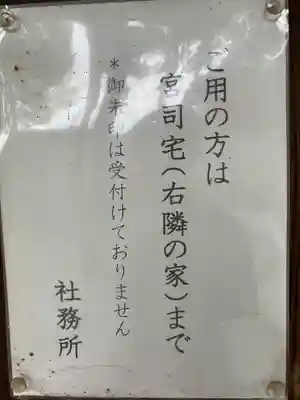 ご用の方は
宮司宅（右隣の家）まで
＊御朱印は受付けておりません
社務所